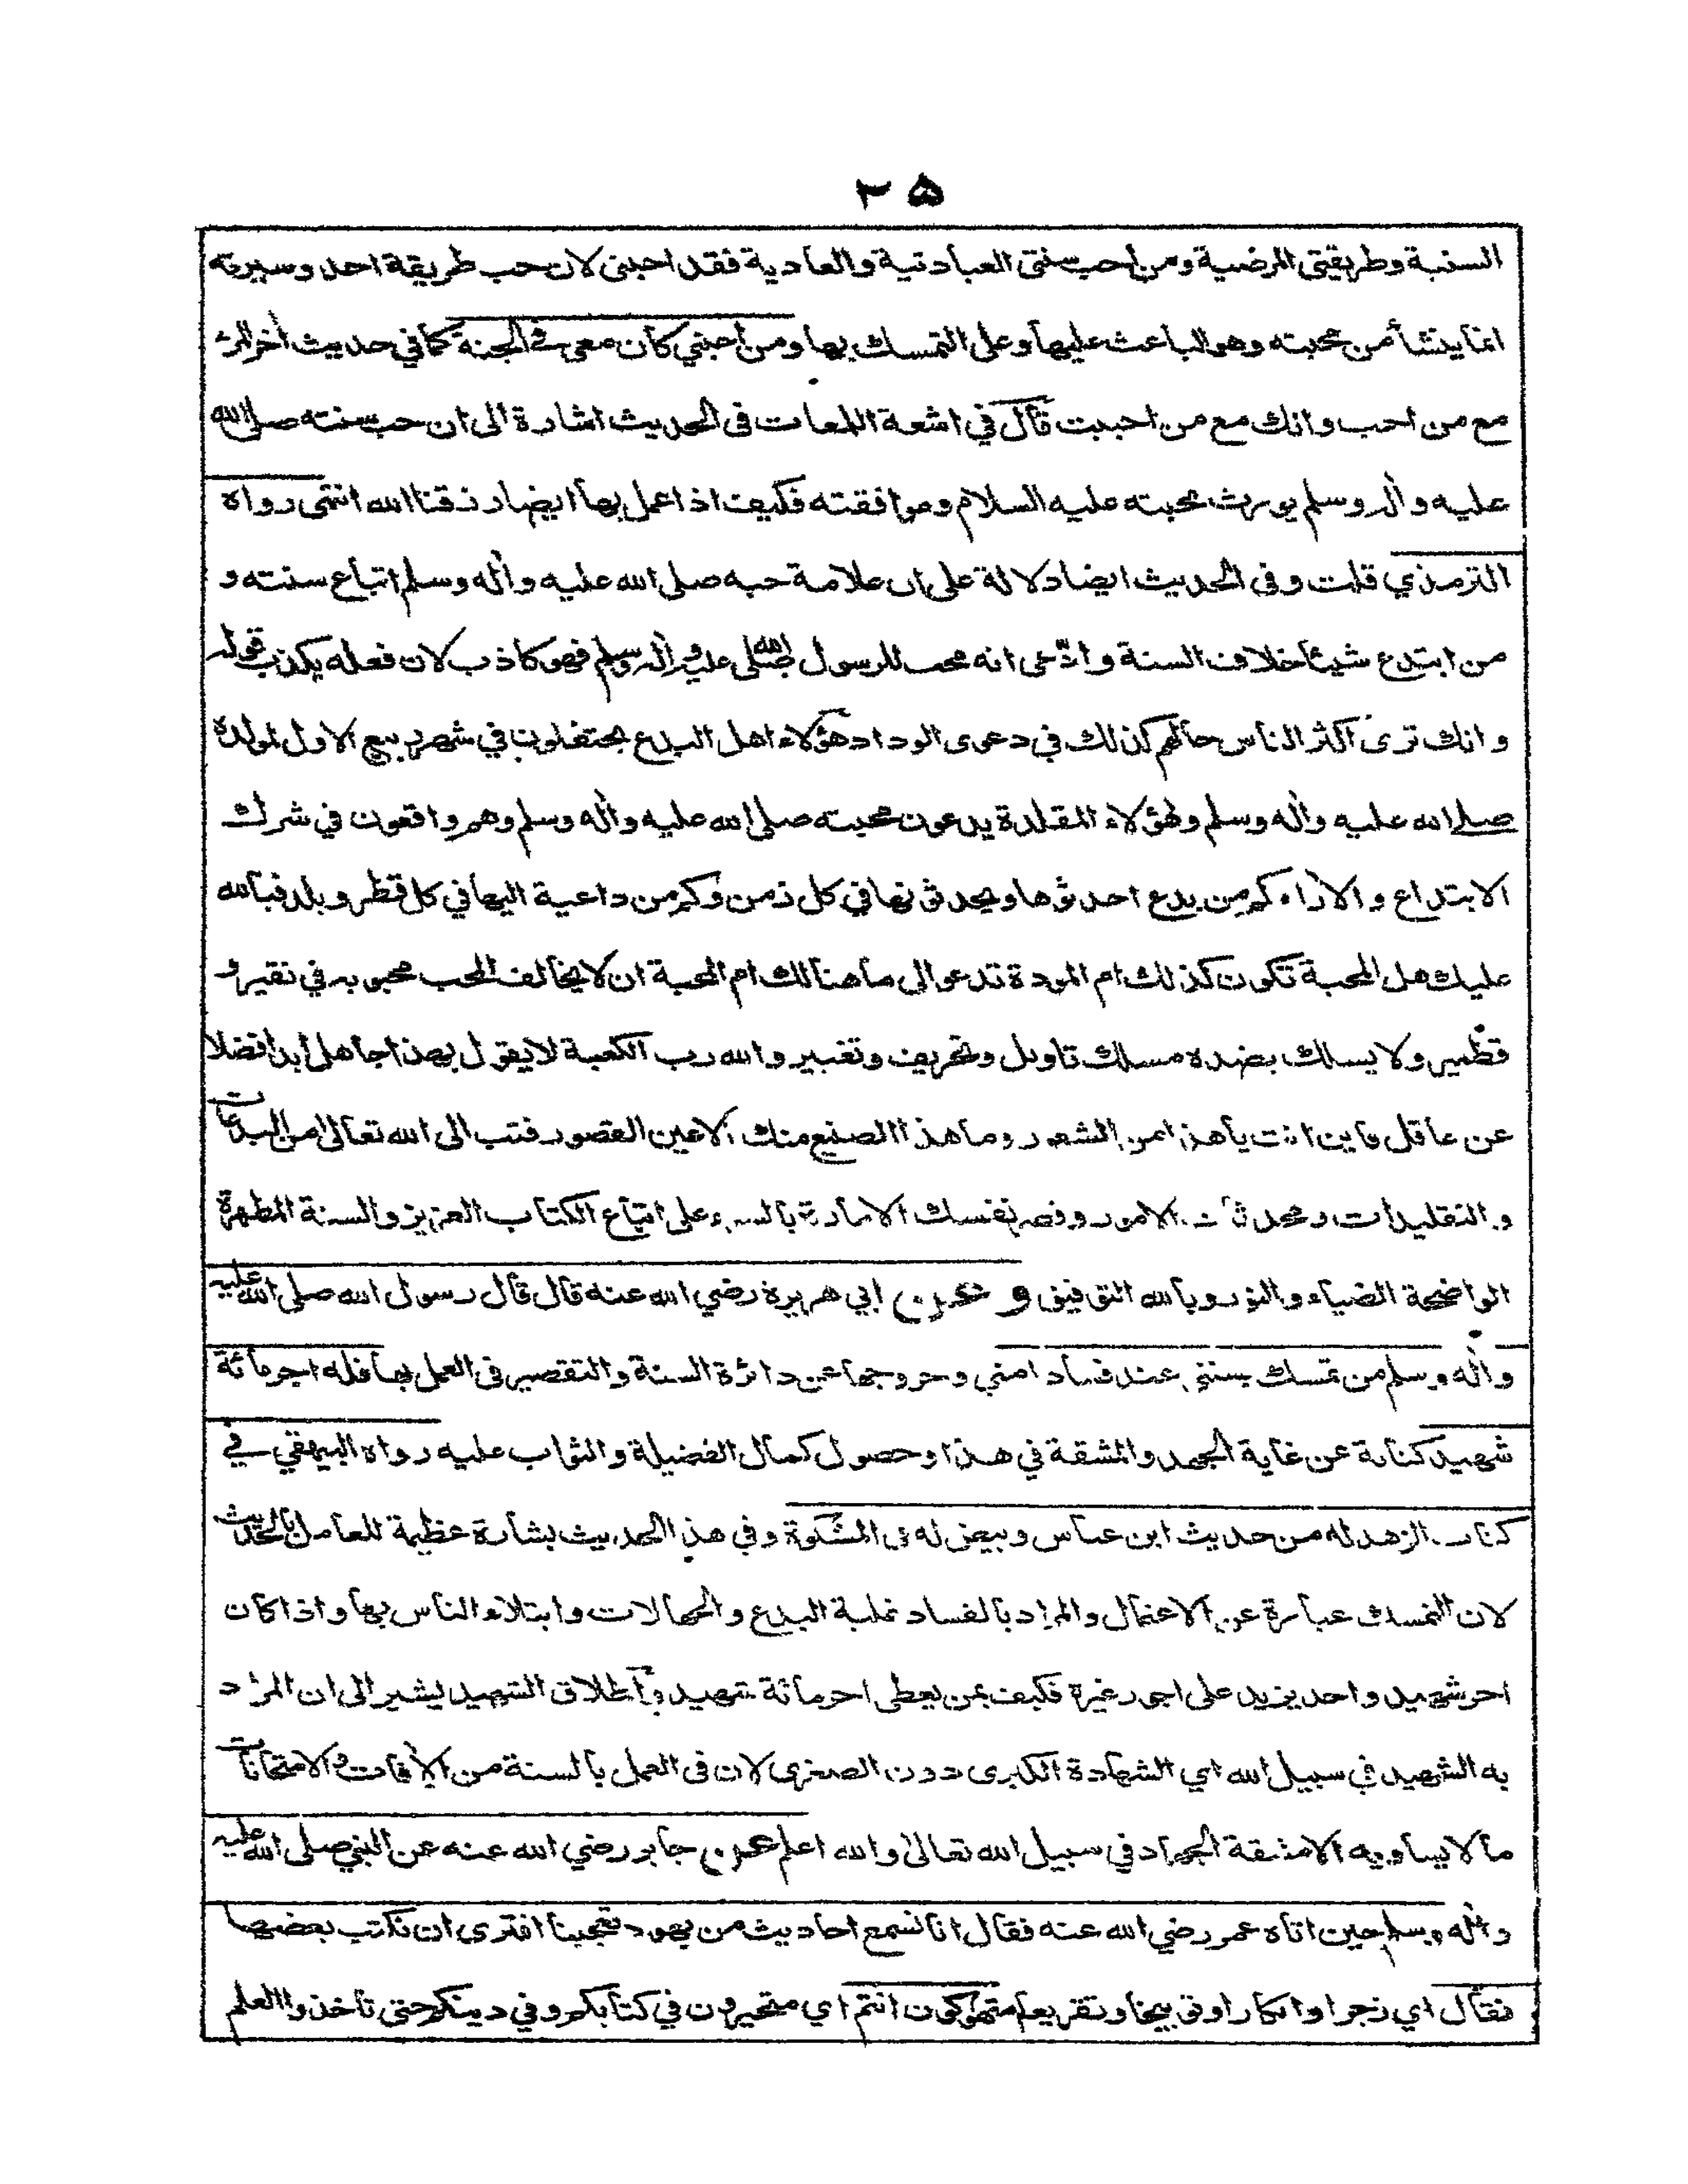 ٢٥
السنية وطريقتي المرضية ومن احب سنتى العبادتية والعادية فقد احبنى لان حب طريقة احد وسيرته
انما ينشأ من محبته وهو الباعث عليها وعلى التمسك بها ومن احبني كان معي في الجنة كما في حديث اخر المرء
مع من احب وانك مع من احببت قال في اشعة اللمعات فى الحديث اشارة الى ان حب سنته صلى الله
عليه واله وسلم يورث محبته عليه السلام وموافقته فكيف اذا عمل بها ايضا رزقنا الله انتهى رواه
الترمذي قلت وفى الحديث ايضا دلالة على ان علامة حبه صلى الله عليه واله وسلم اتباع سنته و
من ابتدع شيئا خلاف السنة وادّعى انه محب للرسول صلى الله عليه واله وسلم فهو كاذب لان فعله يكذب قوله
وانك ترى اكثر الناس حالهم كذلك في دعوى الوداد هؤلاء اهل البدع يحتفلون في شهر ربيع الاول لمولده
صلى الله عليه واله وسلم ولهؤلاء المقلدة يدعون محبته صلى الله عليه واله وسلم وهم واقعون في شرك
الابتداع والاراء كم من بدع احدثوها ويحدثونها في كل زمن وكم من داعية اليها في كل قطر وبلد فبالله
عليك هل المحبة تكون كذلك ام المودة تدعو الى ما هنالك ام المحبة ان لا يخالف المحب محبوبه في نقير و
قطمير ولا يسلك بضده مسلك تاويل وتحريف وتغيير والله رب الكعبة لا يقول بهذا جاهل ابدا فضلا
عن عاقل فاين انت يا هذا من الشعور وما هذا الصنيع منك الا عين القصور فتب الى الله تعالى من البدعات
والتقليدات ومحدثات الامور وقصر نفسك الامارة بالسوء على اتباع الكتاب العزيز والسنة المطهرة
الواضحة الضياء والنور وبالله التوفيق وعن ابي هريرة رضي الله عنه قال قال رسول الله صلى الله عليه
واله وسلم من تمسك بسنتي عند فساد امتي وخروجها عن دائرة السنة والتقصير فى العمل بها فله اجر مائة
شهيد كناية عن غاية الجهد والمشقة في هذا وحصول كمال الفضيلة والثواب عليه رواه البيهقي في
كتاب الزهد له من حديث ابن عباس وبيض له فى المشكوة وفي هذا الحديث بشارة عظيمة للعامل بالحديث
لان التمسك عبارة عن الاعتمال والمراد بالفساد غلبة البدع والجهالات وابتلاء الناس بها واذا كان
اجر شهيد واحد يزيد على اجور غيره فكيف بمن يعطى اجر مائة شهيد واطلاق الشهيد يشير الى ان المراد
به الشهيد في سبيل الله اي الشهادة الكبرى دون الصغرى لان فى العمل بالسنة من الافات والامتحانات
ما لا يساويه الا مشقة الجهاد في سبيل الله تعالى والله اعلم عن جابر رضي الله عنه عن النبي صلى الله عليه
واله وسلم حين اتاه عمر رضي الله عنه فقال انا نسمع احاديث من يهود تعجبنا افترى ان نكتب بعضها
فقال اي زجرا وانكارا وتوبيخا وتقريعا متهوكون انتم اي متحيرون في كتابكم وفي دينكم حتى تاخذوا العلم